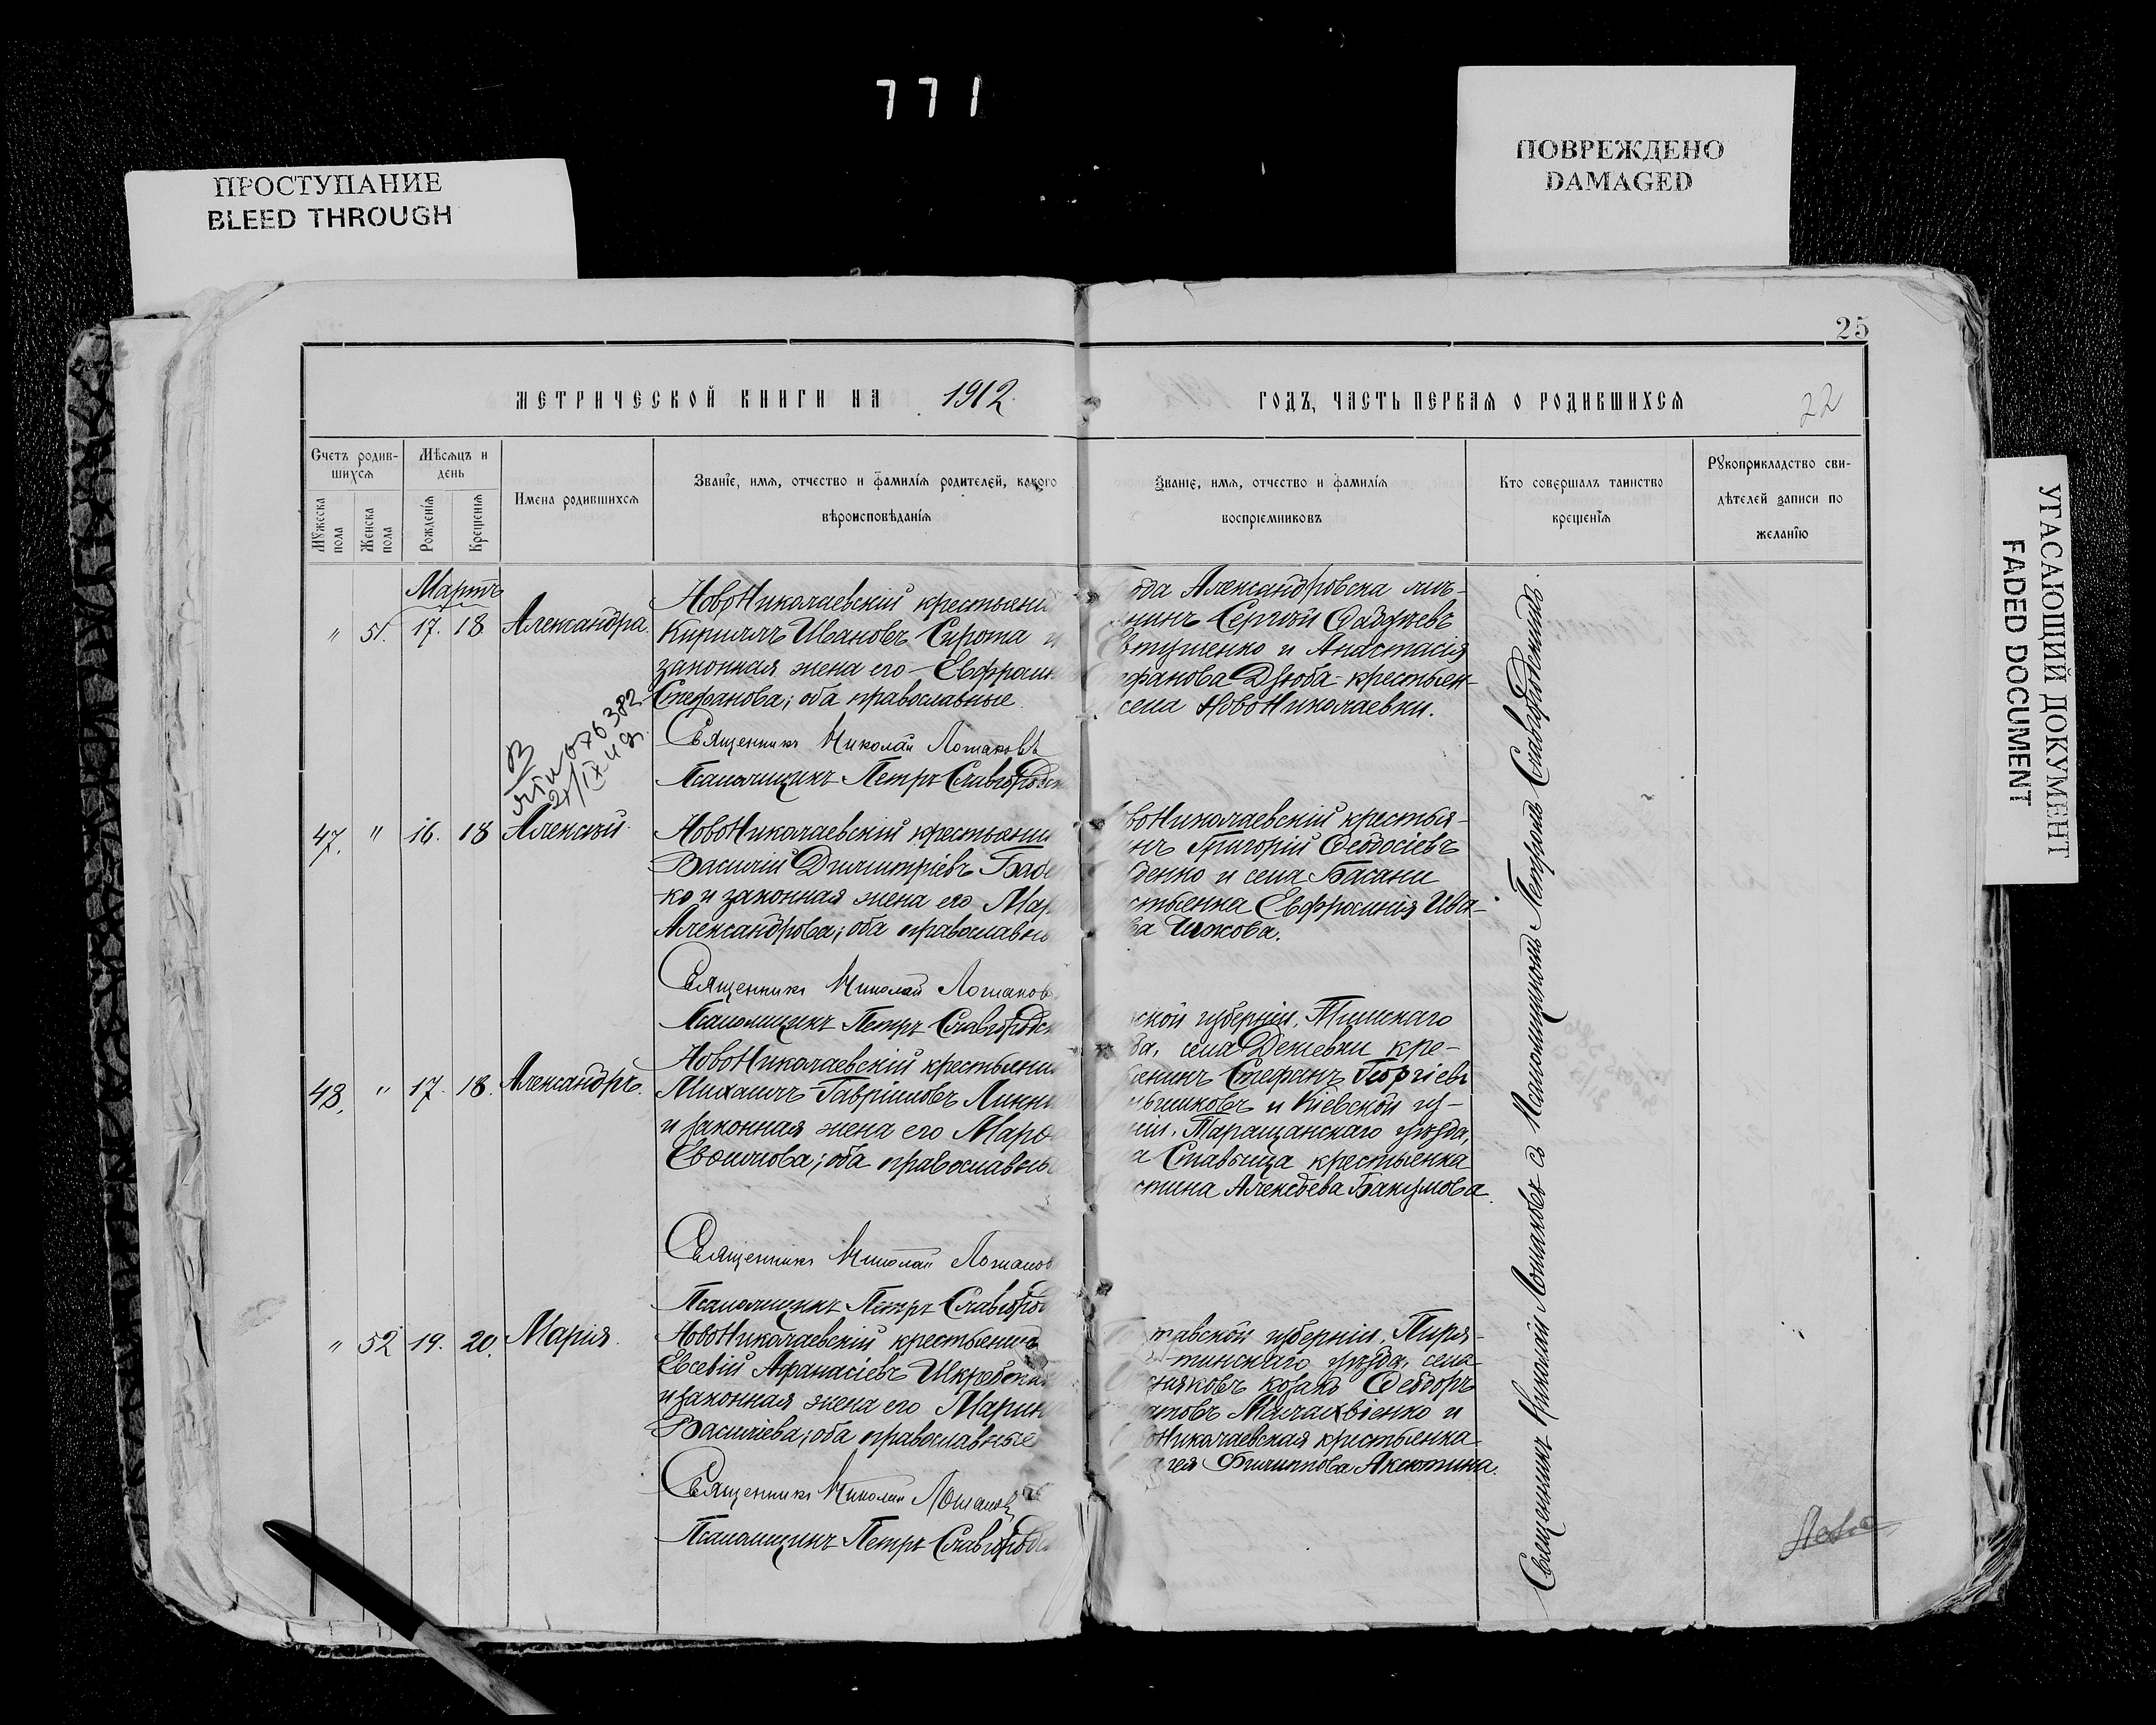 771
ПРОСТУПАНИЕ
BLEED THROUGH
ПОВРЕЖДЕНО
DAMAGED
УГАСАЮЩИЙ ДОКУМЕНТ
FADED DOCUMENT
25
МЕТРИЧЕСКОЙ КНИГИ НА 1912
ГОДЪ, ЧАСТЬ ПЕРВАЯ О РОДИВШИХСЯ
22
Счетъ родив-
шихся
Мужеска
пола
Женска
пола
Мѣсяцъ и
день
Рожденія
Крещенія
Имена родившихся
Званіе, имя, отчество и фамилія родителей, какого
вѣроисповѣданія
Званіе, имя, отчество и фамилія
воспріемниковъ
Кто совершалъ таинство
крещенія
Рукоприкладство сви-
дѣтелей записи по
желанію
Мартъ
" 51. 17. 18. Александра.
НовоНиколаевскій крестьяни
Кириллъ Ивановъ Сирота и
законная жена его - Евфроси
Стефанова; оба православные
Священникъ Николай Лошаковъ
Псаломщикъ Петръ Славгородск
ода Александровска мѣ-
нинъ Сергѣй Фаддѣевъ
Евтушенко и Анастасія
ефанова Дзюба - крестьян-
села НовоНиколаевки.
076382
47. " 16. 18 Алексѣй.
НовоНиколаевскій крестьяни
Василій Димитріевъ Бабе
-ко и законная жена его Мар
Александрова; оба православн
Священникъ Николай Лошаковъ
Псаломщикъ Петръ Славгородск
воНиколаевскій крестья-
нъ Григорій Феодосіевъ
денко и села Басани
стьянка Евфросинія Ива-
ва
48. " 17. 18. Александръ.
НовоНиколаевскій крестьяни
Михаилъ Гавріиловъ Линни
и законная жена его Марѳа
Евѳимова; оба православны
Священникъ Николай Лошаков
Псаломщикъ Петръ Славгород
ской губерніи, Тимскаго
да, села Дежевки кре-
янинъ Стефанъ Георгіевъ
ьшиковъ и Кіевской гу-
ніи, Таращанскаго уѣзда,
а Ставища крестьянка
стина Алексѣева Бакумова.
" 52 19. 20. Марія.
НовоНиколаевскій крестьянинъ
Евсевій Аѳанасіевъ Шкребтка
и законная жена его Марин
Васильева; оба православные
Священникъ Николай Лошаковъ
Псаломщикъ Петръ Славгородс
тавской губерніи, Пиря-
тинскаго уѣзда, села
няковъ козакъ Феодоръ
атовъ Малахвіенко и
оНиколаевская крестьянка
Филиппова Аксютина.
Священникъ Николай Лошаковъ съ Псаломщикомъ Петромъ Славгородскимъ.